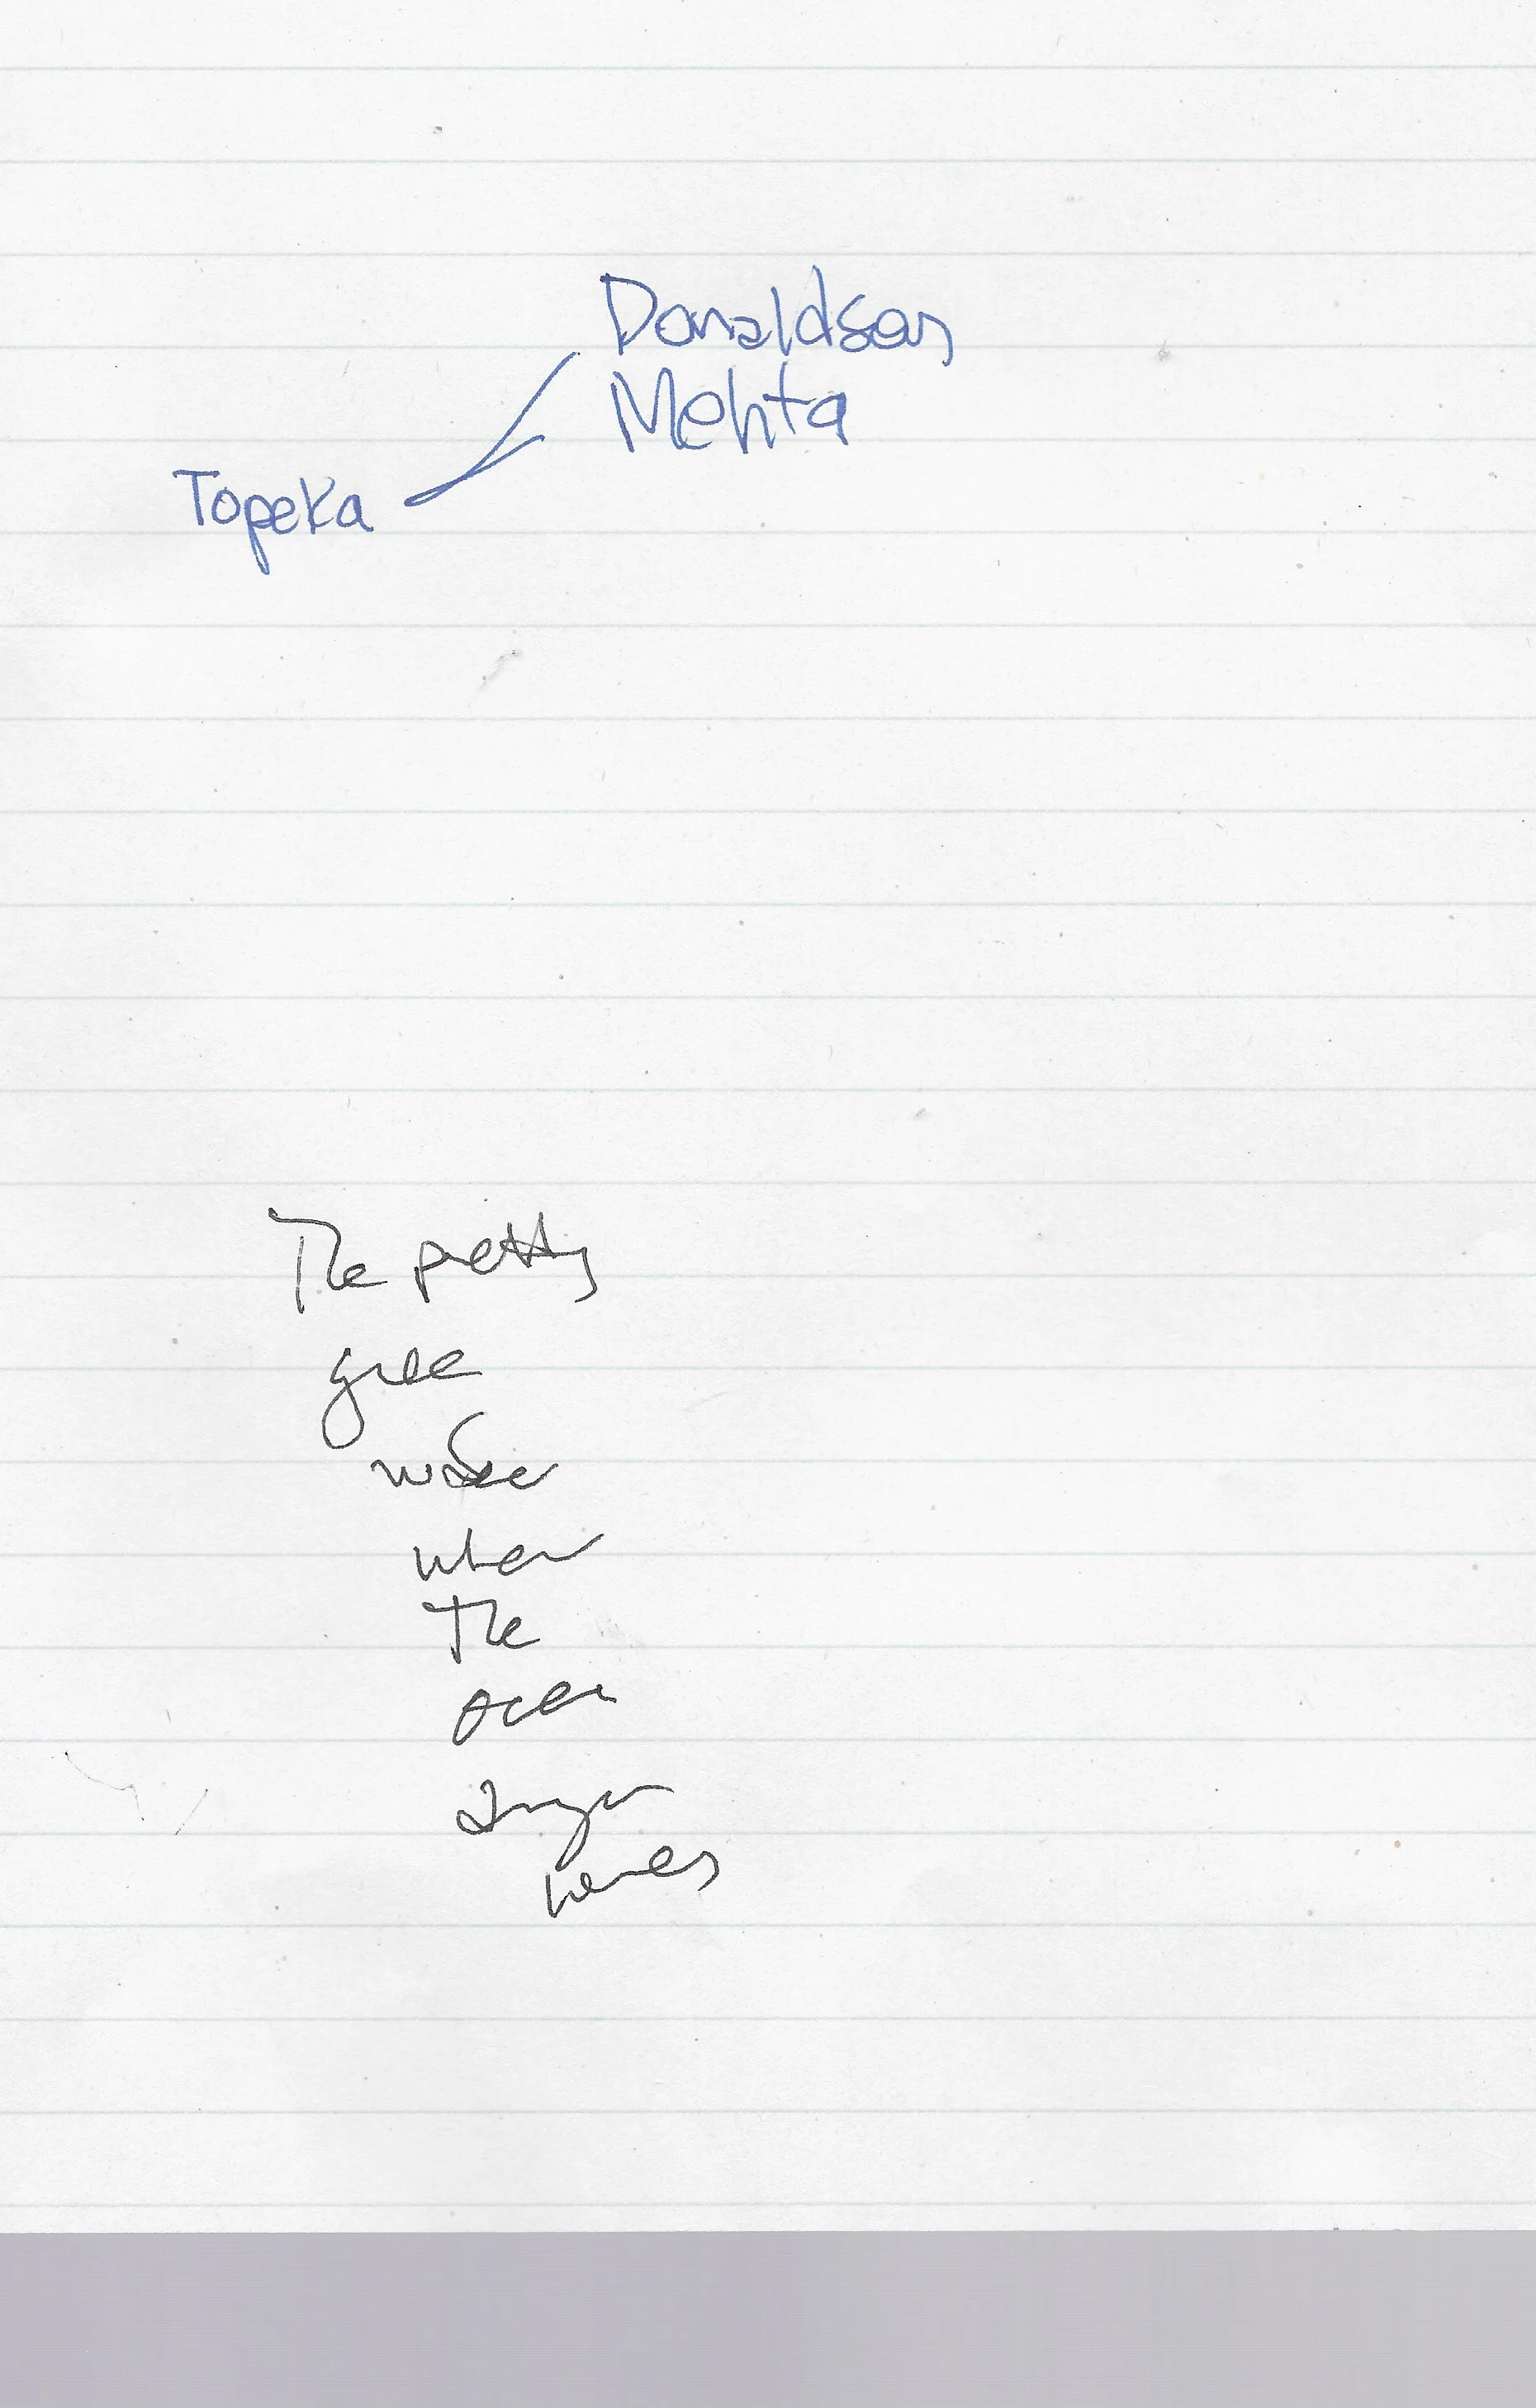 Donaldson
Mehta
Topeka
The pretty
green
water
when
The
ocean